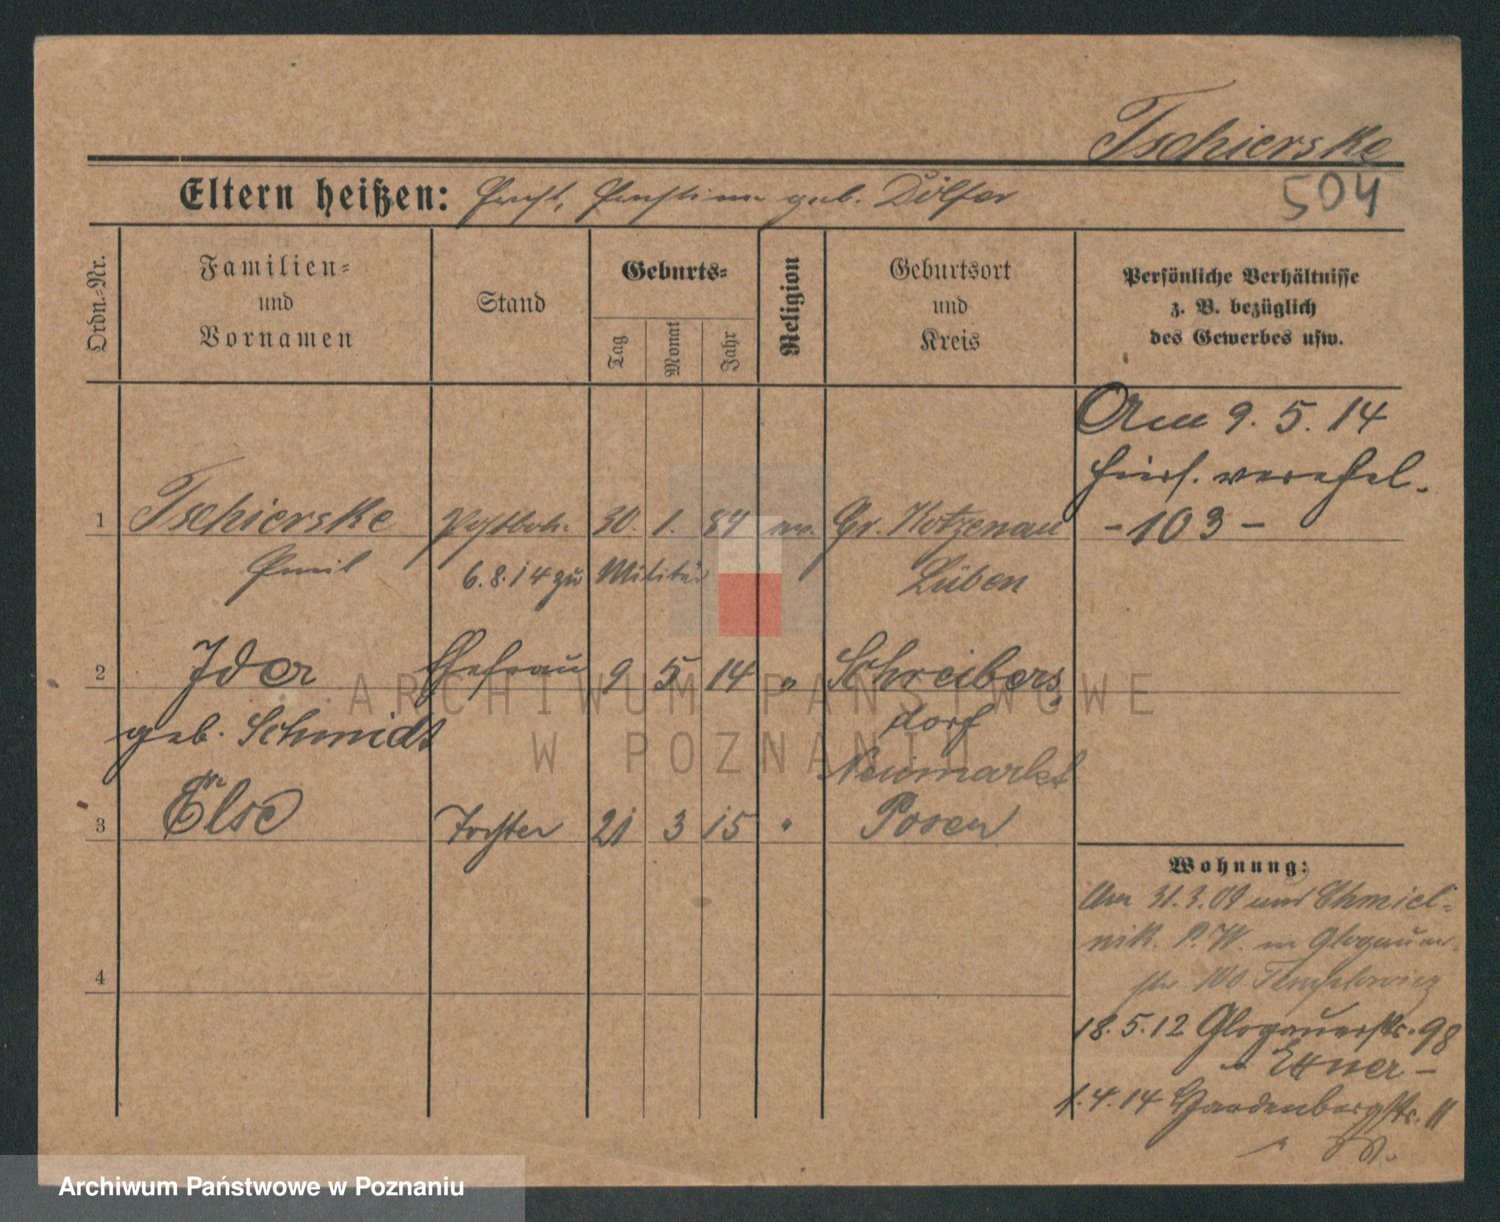 Tschierske
504
Eltern heißen: Ernst, Ernstine geb. Dölfer
Ordn.-Nr.
Familien-
und
Vornamen
Stand
Geburts-
Tag
Monat
Jahr
Religion
Geburtsort
und
Kreis
Persönliche Verhältnisse
z. B. bezüglich
des Gewerbes usw.
Am 9. 5. 14
hiers. verehel.
- 103 -
1 Tschierske Postbote 30. 1. 84 ev. Gr. Kotzenau
Emil 6.8.14 zu Militär Lüben
2 Ida Ehefrau 9 5 14 " Schreibers
geb. Schmidt dorf
Neumarkt
3 Else Tochter 21 3 15 " Posen
4
Wohnung:
Am 31.3.09 von Chmiel-
nik. P. W. in Glogauer
str 100
18.5.12 Glogauerstr. 98
1.4.14 Hardenbergstr. 11
ARCHIWUM PAŃSTWOWE
W POZNANIU
Archiwum Państwowe w Poznaniu